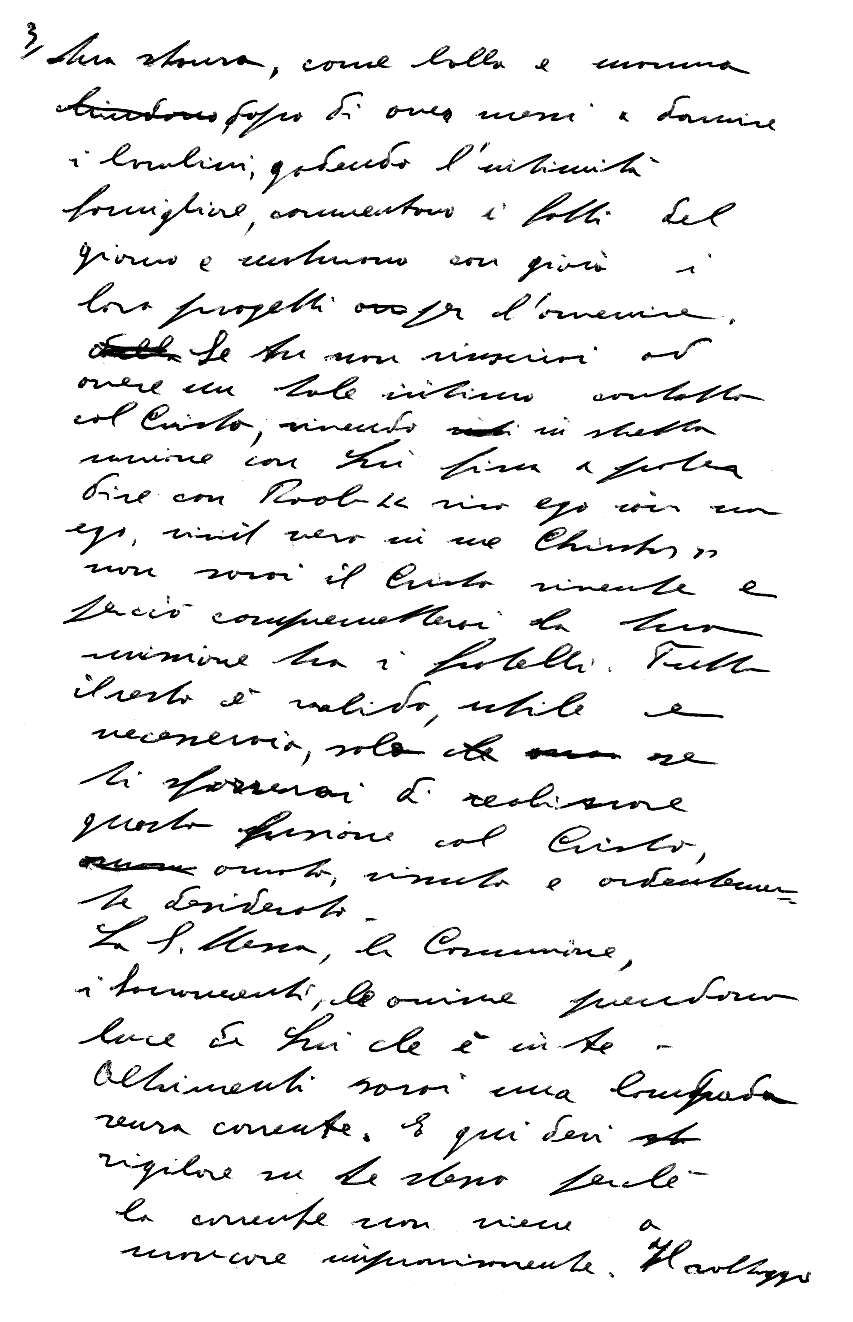 3/
tua stanza, come babbo e mamma
dopo di aver messi a dormire
i bambini, godendo l'intimità
famigliare, commentano i fatti del
giorno e motivano con gioia i
loro progetti per l'avvenire.
Se tu non riuscirai ad
avere un tale intimo contatto
col Cristo, vivendo in stretta
unione con Lui fino a poter
dire con Paolo << vivo ego iam non
ego, vivit vero in me Christus >>
non sarai il Cristo vivente e
perciò comprometterai la tua
missione tra i fratelli. Tutto
il resto è valido, utile e
necessario, solo se
ti sforzerai di realizzare
questa fusione col Cristo,
amato, vissuto e ardentemen=
te desiderato.
La S. Messa, la Comunione,
i Sacramenti, le anime prendono
luce da Lui che è in te -
Altrimenti sarai una lampada
senza corrente. E qui devi
vigilare su te stesso perchè
la corrente non viene a
mancare improvvisamente. Il voltaggio